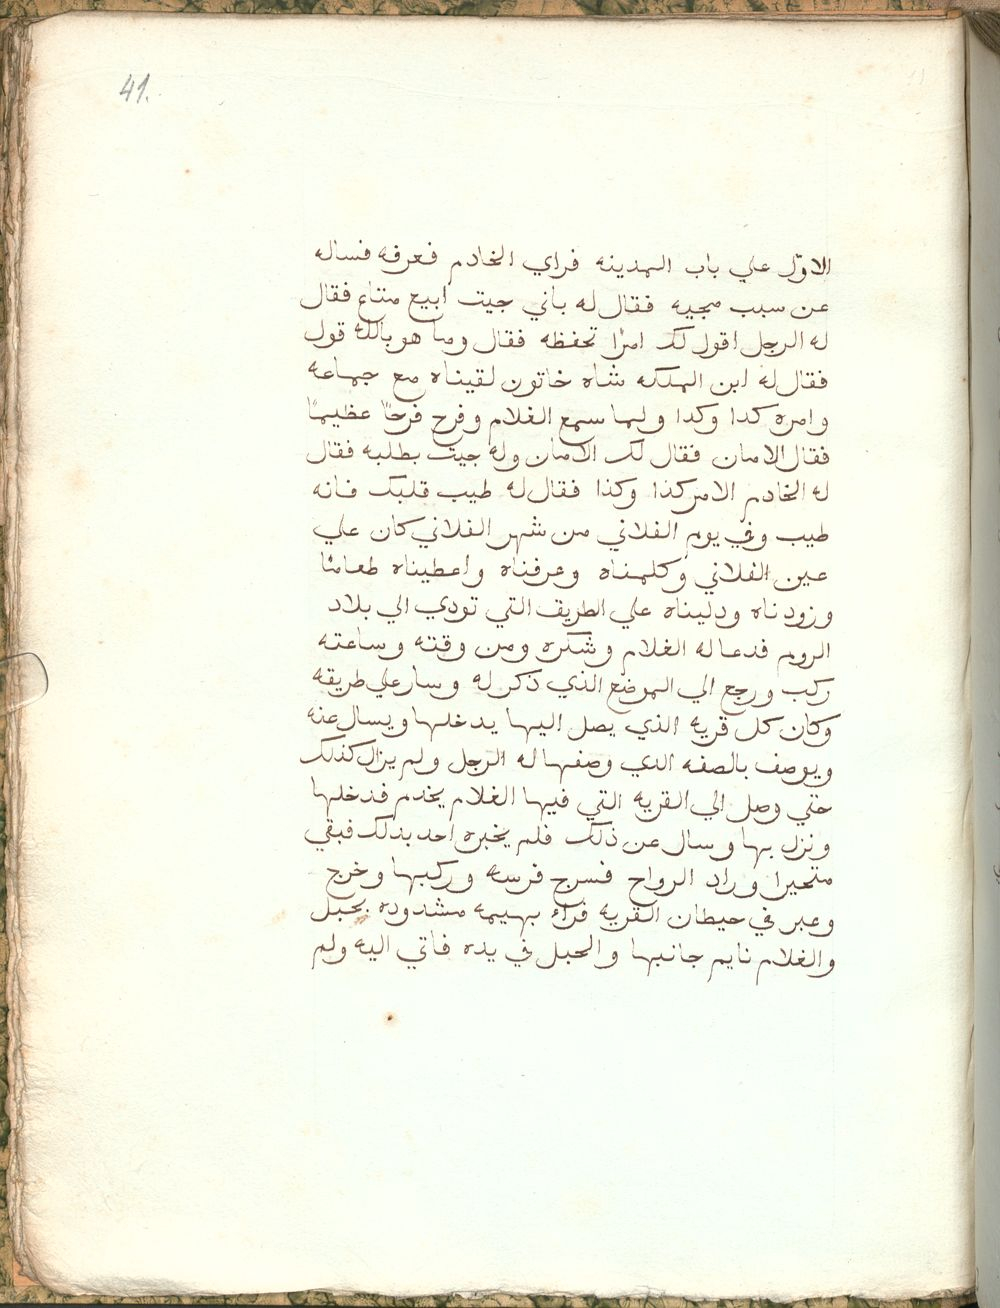 41.
الاول علي باب المدينه فراي الخادم فعرفه فساله
عن سبب مجيه فقال له باني جيت ابيع متاع فقال
له الرجل اقول لك امرًا تحفظه فقال وما هو بالله قول
فقال له ابن الملكه شاه خاتون لقيناه مع جماعه
وامره كدا وكدا ولما سمع الغلام وفرح فرحًا عظيمًا
فقال الامان فقال لك الامان وله جيت بطلبه فقال
له الخادم الامر كذا وكذا فقال له طيب قلبك فانه
طيب وفي يوم الفلاني من شهر الفلاني كان علي
عين الفلاني وكلمناه وعرفناه واعطيناه طعامًا
وزودناه ودليناه علي الطريق التي تودي الي بلاد
الروم فدعا له الغلام وشكره ومن وقته وساعته
ركب ورجع الي الموضع الذي ذكر له وسار علي طريقه
وكان كل قريه الذي يصل اليها يدخلها ويسال عنه
ويوصف بالصفه الدي وصفها له الرجل ولم يزال كذلك
حتي وصل الي القريه التي فيها الغلام يخدم فدخلها
ونزل بها وسال عن ذلك فلم يخبره احد بدلك فبقي
متحيرا وراد الرواح فسرج فرسه وركبها وخرج
وعبر في حيطان القريه فراء بهيمه مشدوده بحبل
والغلام نايم جانبها والحبل في يده فاتي اليه ولم